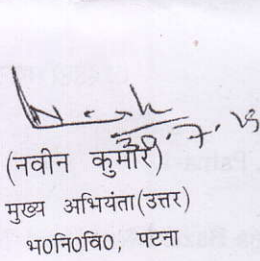 30.7.15
(नवीन कुमार)
मुख्य अभियंता(उत्तर)
भ०नि०वि०, पटना